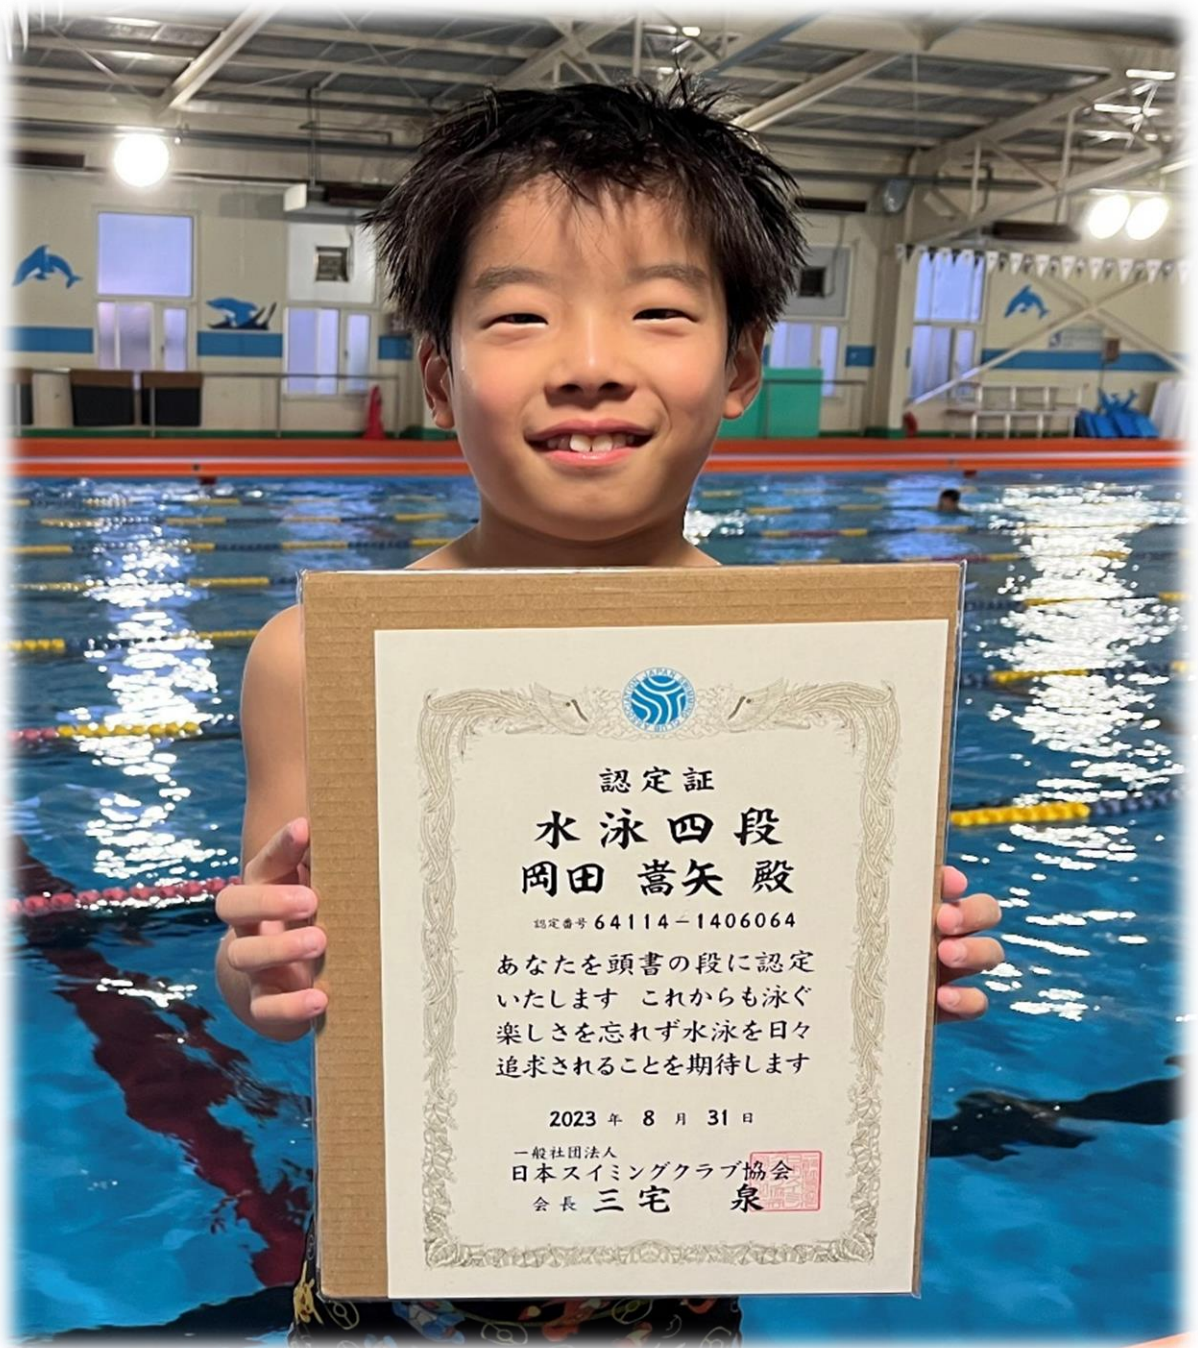 認定証
水泳四段
岡田 嵩矢 殿
認定番号 64114-1406064
あなたを頭書の段に認定
いたします これからも泳ぐ
楽しさを忘れず水泳を日々
追求されることを期待します
2023 年 8 月 31 日
一般社団法人
日本スイミングクラブ協会
会長 三宅 泉